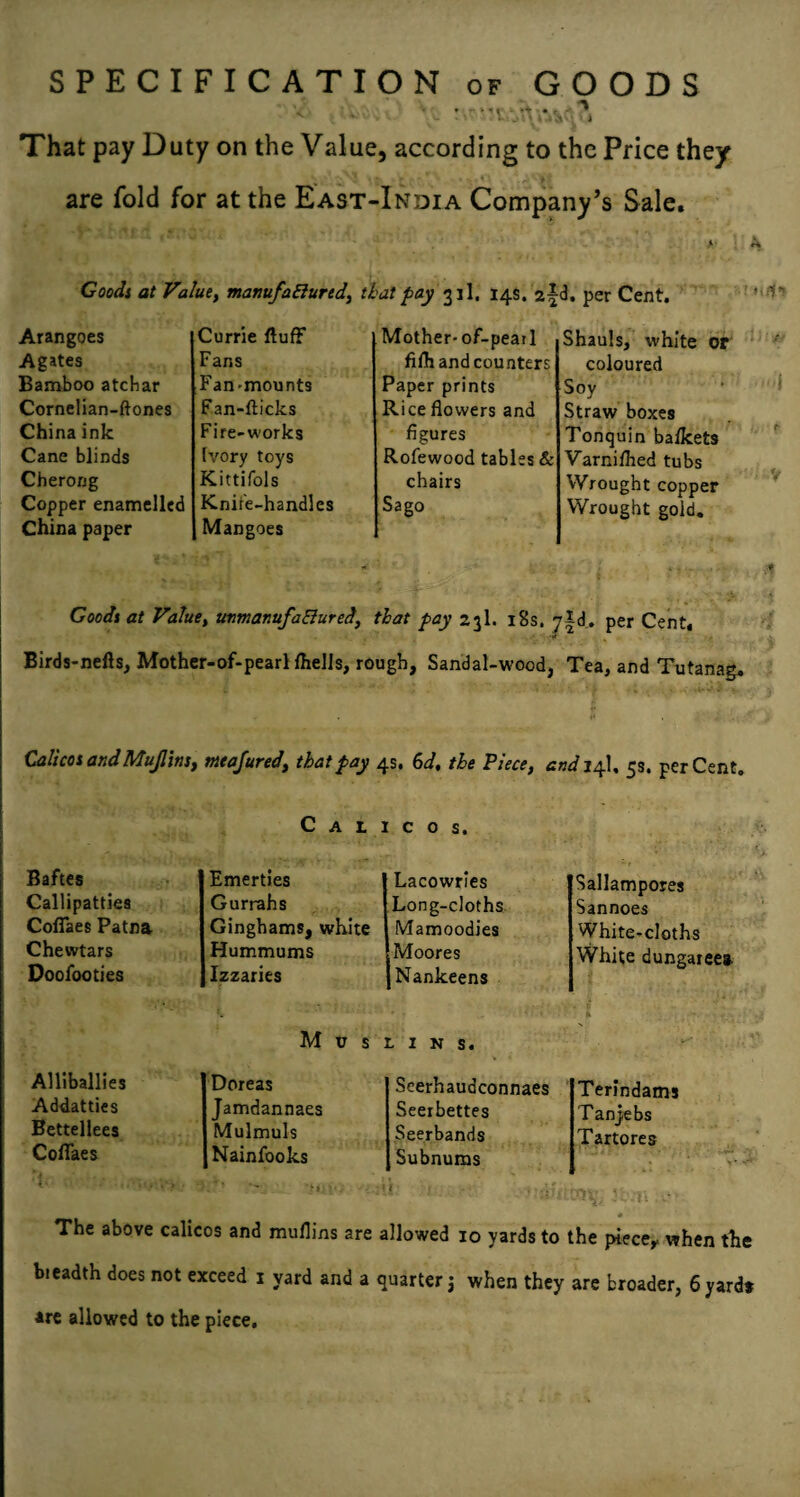 SPECIFICATION OF GOODS
That pay Duty on the Value, according to the Price they
are ſold for at the EAST-INDIA Company's Sale.
Goods at Value, manufactured, that pay 31l. 14s. 2½d. per Cent.
Arangoes
Agates
Bamboo atchar
Cornelian-ſtones
China ink
Cane blinds
Cherong
Copper enamelled
China paper
Currie ſtuff
Fans
Fan-mounts
Fan-ſticks
Fire-works
Ivory toys
Kittiſols
Knife-handles
Mangoes
Mother-of-pearl
fiſh and counters
Paper prints
Rice flowers and
figures
Roſewood tables &
chairs
Sago
Shauls, white or
coloured
Soy
Straw boxes
Tonquin baſkets
Varniſhed tubs
Wrought copper
Wrought gold.
Goods at Value, unmanufactured, that pay 23l. 18s. 7½d. per Cent.
Birds-neſts, Mother-of-pearl ſhells, rough, Sandal-wood, Tea, and Tutanag.
Calicos and Muſlins, meaſured, that pay 4s. 6d. the Piece, and 14l. 5s. per Cent.
CALICOS.
Baftes
Callipatties
Coſſaes Patna
Chewtars
Dooſooties
Emerties
Gurrahs
Ginghams, white
Hummums
Izzaries
Lacowries
Long-cloths
Mamoodies
Moores
Nankeens
Sallampores
Sannoes
White-cloths
White dungarees
MUSLINS.
Alliballies
Addatties
Bettellees
Coſſaes
Doreas
Jamdannaes
Mulmuls
Nainſooks
Seerhaudconnaes
Seerbettes
Seerbands
Subnums
Terindams
Tanjebs
Tartores
The above calicos and muſlins are allowed 10 yards to the piece, when the
breadth does not exceed 1 yard and a quarter; when they are broader, 6 yards
are allowed to the piece.